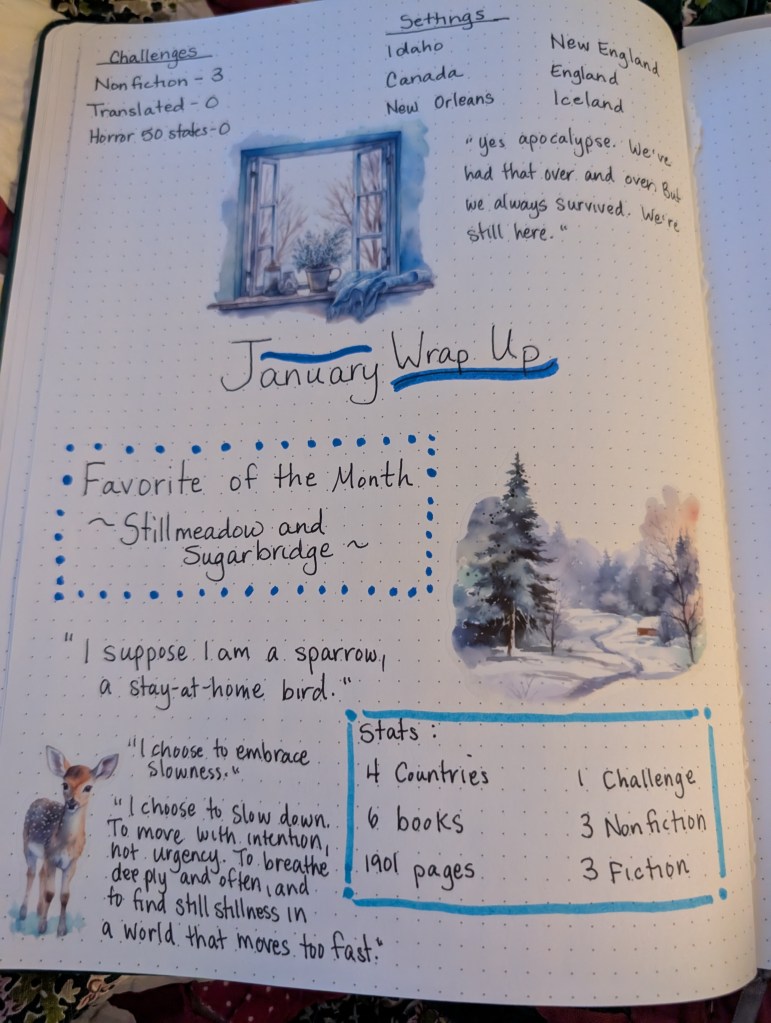 Challenges
Nonfiction - 3
Translated - 0
Horror 50 states - 0
Settings
Idaho
Canada
New Orleans
New England
England
Iceland
"Yes apocalypse. We've
had that over and over. But
we always survived. We're
still here."
January Wrap Up
Favorite of the Month
~ Stillmeadow and
Sugarbridge ~
"I suppose I am a sparrow,
a stay-at-home bird."
"I choose to embrace
slowness."
"I choose to slow down.
To move with intention,
not urgency. To breathe
deeply and often, and
to find still stillness in
a world that moves too fast."
Stats:
4 Countries
6 books
1901 pages
1 Challenge
3 Nonfiction
3 Fiction